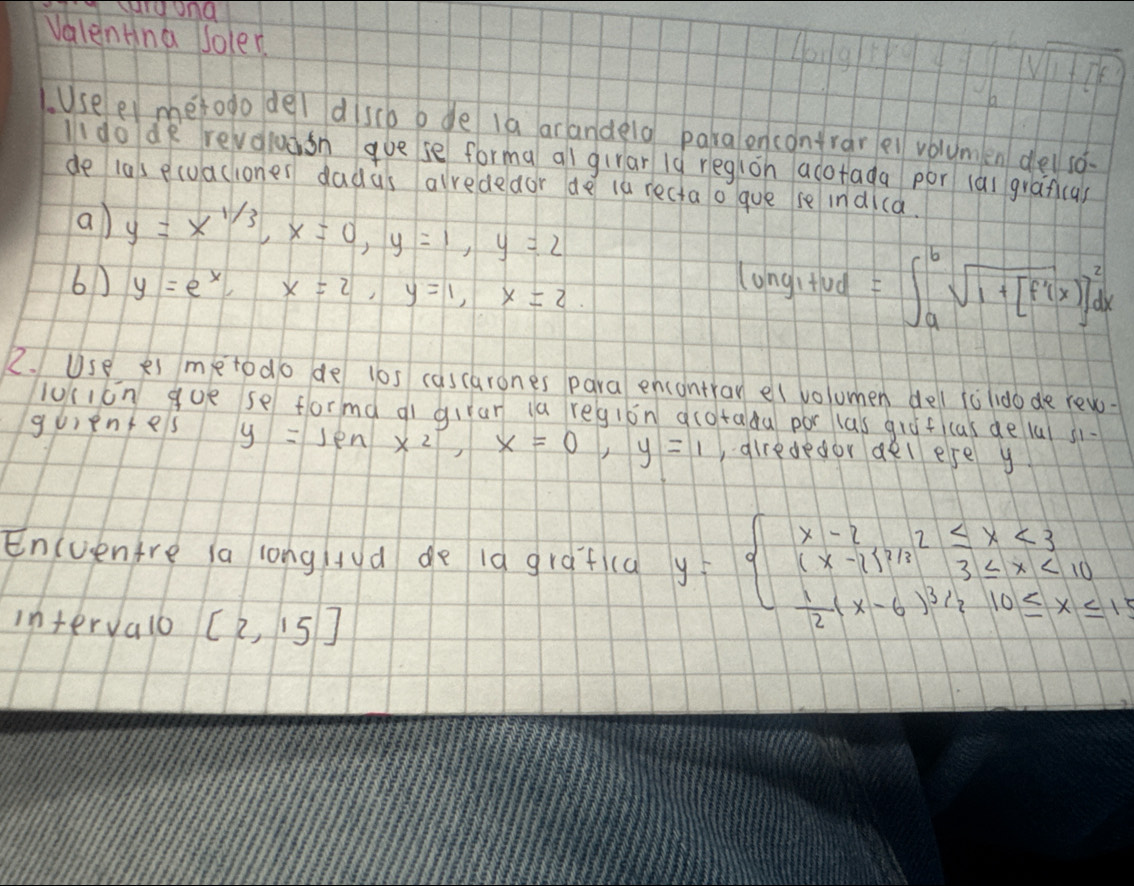 Valentina Soler.
1. Use el método del disco o de la arandela para encontrar el volumen del só-
lido de revolución que se forma al girar la región acotada por las gráficas
de las ecuaciones dadas alrededor de la recta o que se indica.
a) y = x^1/3, x = 0, y = 1, y = 2
b) y = e^x, x = 2, y = 1, x = 2.
longitud = ∫_a^b √1 + [f'(x)]^2 dx
2. Use el método de los cascarones para encontrar el volumen del sólido de revo-
lución que se forma al girar la región acotada por las gráficas de las si-
guientes y = sen x^2, x = 0, y = 1, alrededor del eje y
Encuentre la longitud de la gráfica y = { x - 2 , 2 ≤ x < 3
(x - 2)^2/3 3 ≤ x < 10
1/2 (x - 6)^3/2 10 ≤ x ≤ 15
intervalo [2, 15]